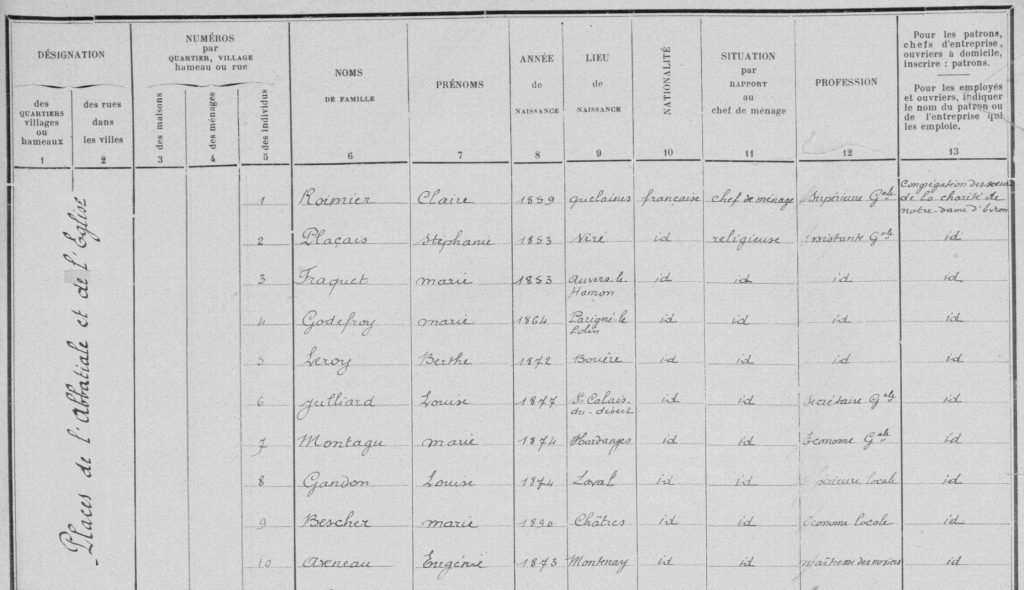 DÉSIGNATION
NUMÉROS
par
QUARTIER, VILLAGE
hameau ou rue
NOMS
DE FAMILLE
PRÉNOMS
ANNÉE
de
NAISSANCE
LIEU
de
NAISSANCE
NATIONALITÉ
SITUATION
par
RAPPORT
au
chef de ménage
PROFESSION
Pour les patrons,
chefs d'entreprise,
ouvriers à domicile,
inscrire : patrons.
Pour les employés
et ouvriers, indiquer
le nom du patron ou
de l'entreprise qui
les emploie.
des
QUARTIERS
villages
ou
hameaux
des rues
dans
les villes
des maisons
des ménages
des individus
1 2 3 4 5 6 7 8 9 10 11 12 13
Places de l'Abbatiale et de l'Eglise
1 Roimier Claire 1859 quelaines française chef de ménage Supérieure Gale Congrégation des soeurs
de la charité de
notre-dame d'Evron
2 Plaçais Stéphanie 1853 Viré id religieuse assistante Gale id
3 Fraquet marie 1853 auvers-le-
Hamon id id id id
4 Godefroy marie 1864 Parigné-le
Polin id id id id
5 Leroy Berthe 1872 Bouère id id id id
6 Julliard Louise 1877 St Calais-
du-désert id id Secrétaire Gale id
7 Montagu marie 1874 Hardanges id id Econome Gale id
8 Gandon Louise 1874 Laval id id locale id
9 Bescher marie 1890 Châtres id id Econome locale id
10 aveneau Eugénie 1873 Montenay id id maîtresse des novices id